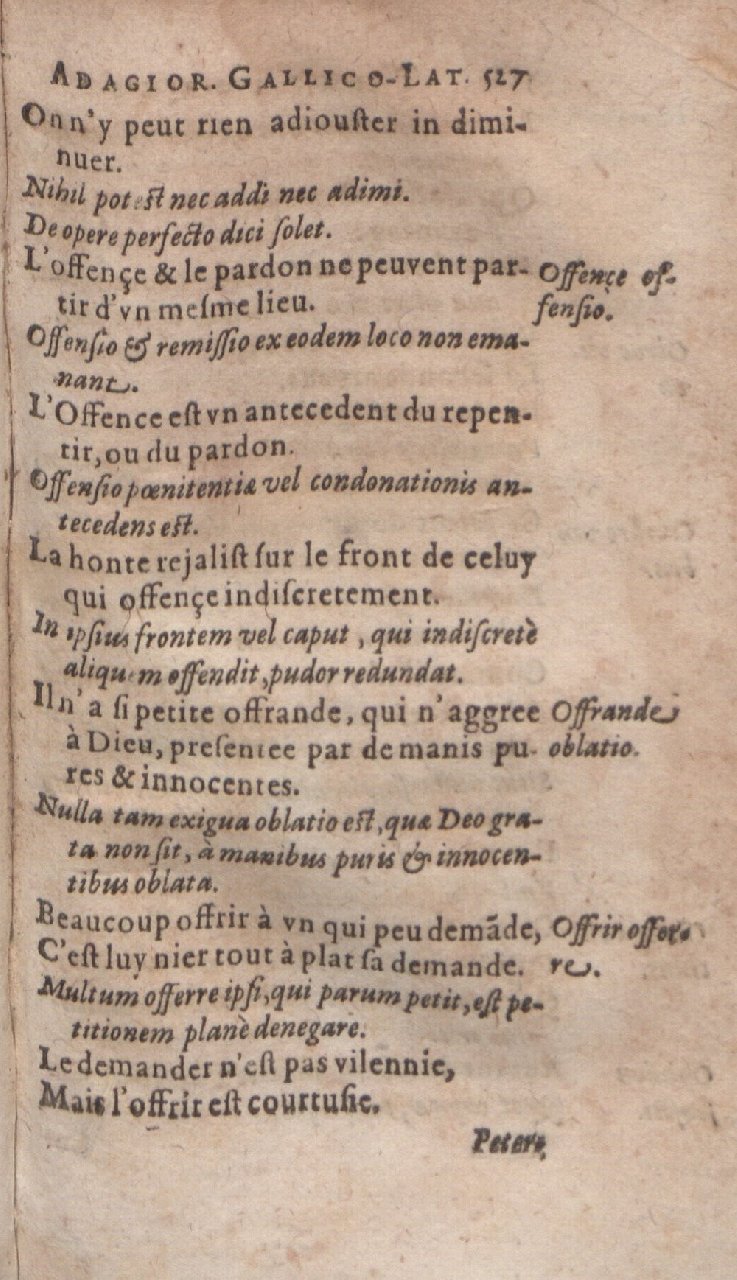 ADAGIOR. GALLICO-LAT. 527
On n'y peut rien adiouſter in dimi-
nuer.
Nihil poteſt nec addi nec adimi.
De opere perfecto dici ſolet.
L'offençe & le pardon ne peuvent par- Offençe of-
tir d'vn meſme lieu. fenſio.
Offenſio & remiſſio ex eodem loco non ema-
nant.
L'Offence eſt vn antecedent du repen-
tir, ou du pardon.
Offenſio pœnitentiæ vel condonationis an-
tecedens eſt.
La honte rejaliſt ſur le front de celuy
qui offençe indiſcretement.
In ipſius frontem vel caput, qui indiſcretè
aliquem offendit, pudor redundat.
Il n'a ſi petite offrande, qui n'aggree Offrande
à Dieu, preſentee par de manis pu- oblatio.
res & innocentes.
Nulla tam exigua oblatio eſt, quæ Deo gra-
ta non ſit, à manibus puris & innocen-
tibus oblata.
Beaucoup offrir à vn qui peu demãde, Offrir offer-
C'eſt luy nier tout à plat ſa demande. re.
Multum offerre ipſi, qui parum petit, eſt pe-
titionem planè denegare.
Le demander n'eſt pas vilennie,
Mais l'offrir eſt courtuſie.
Petere